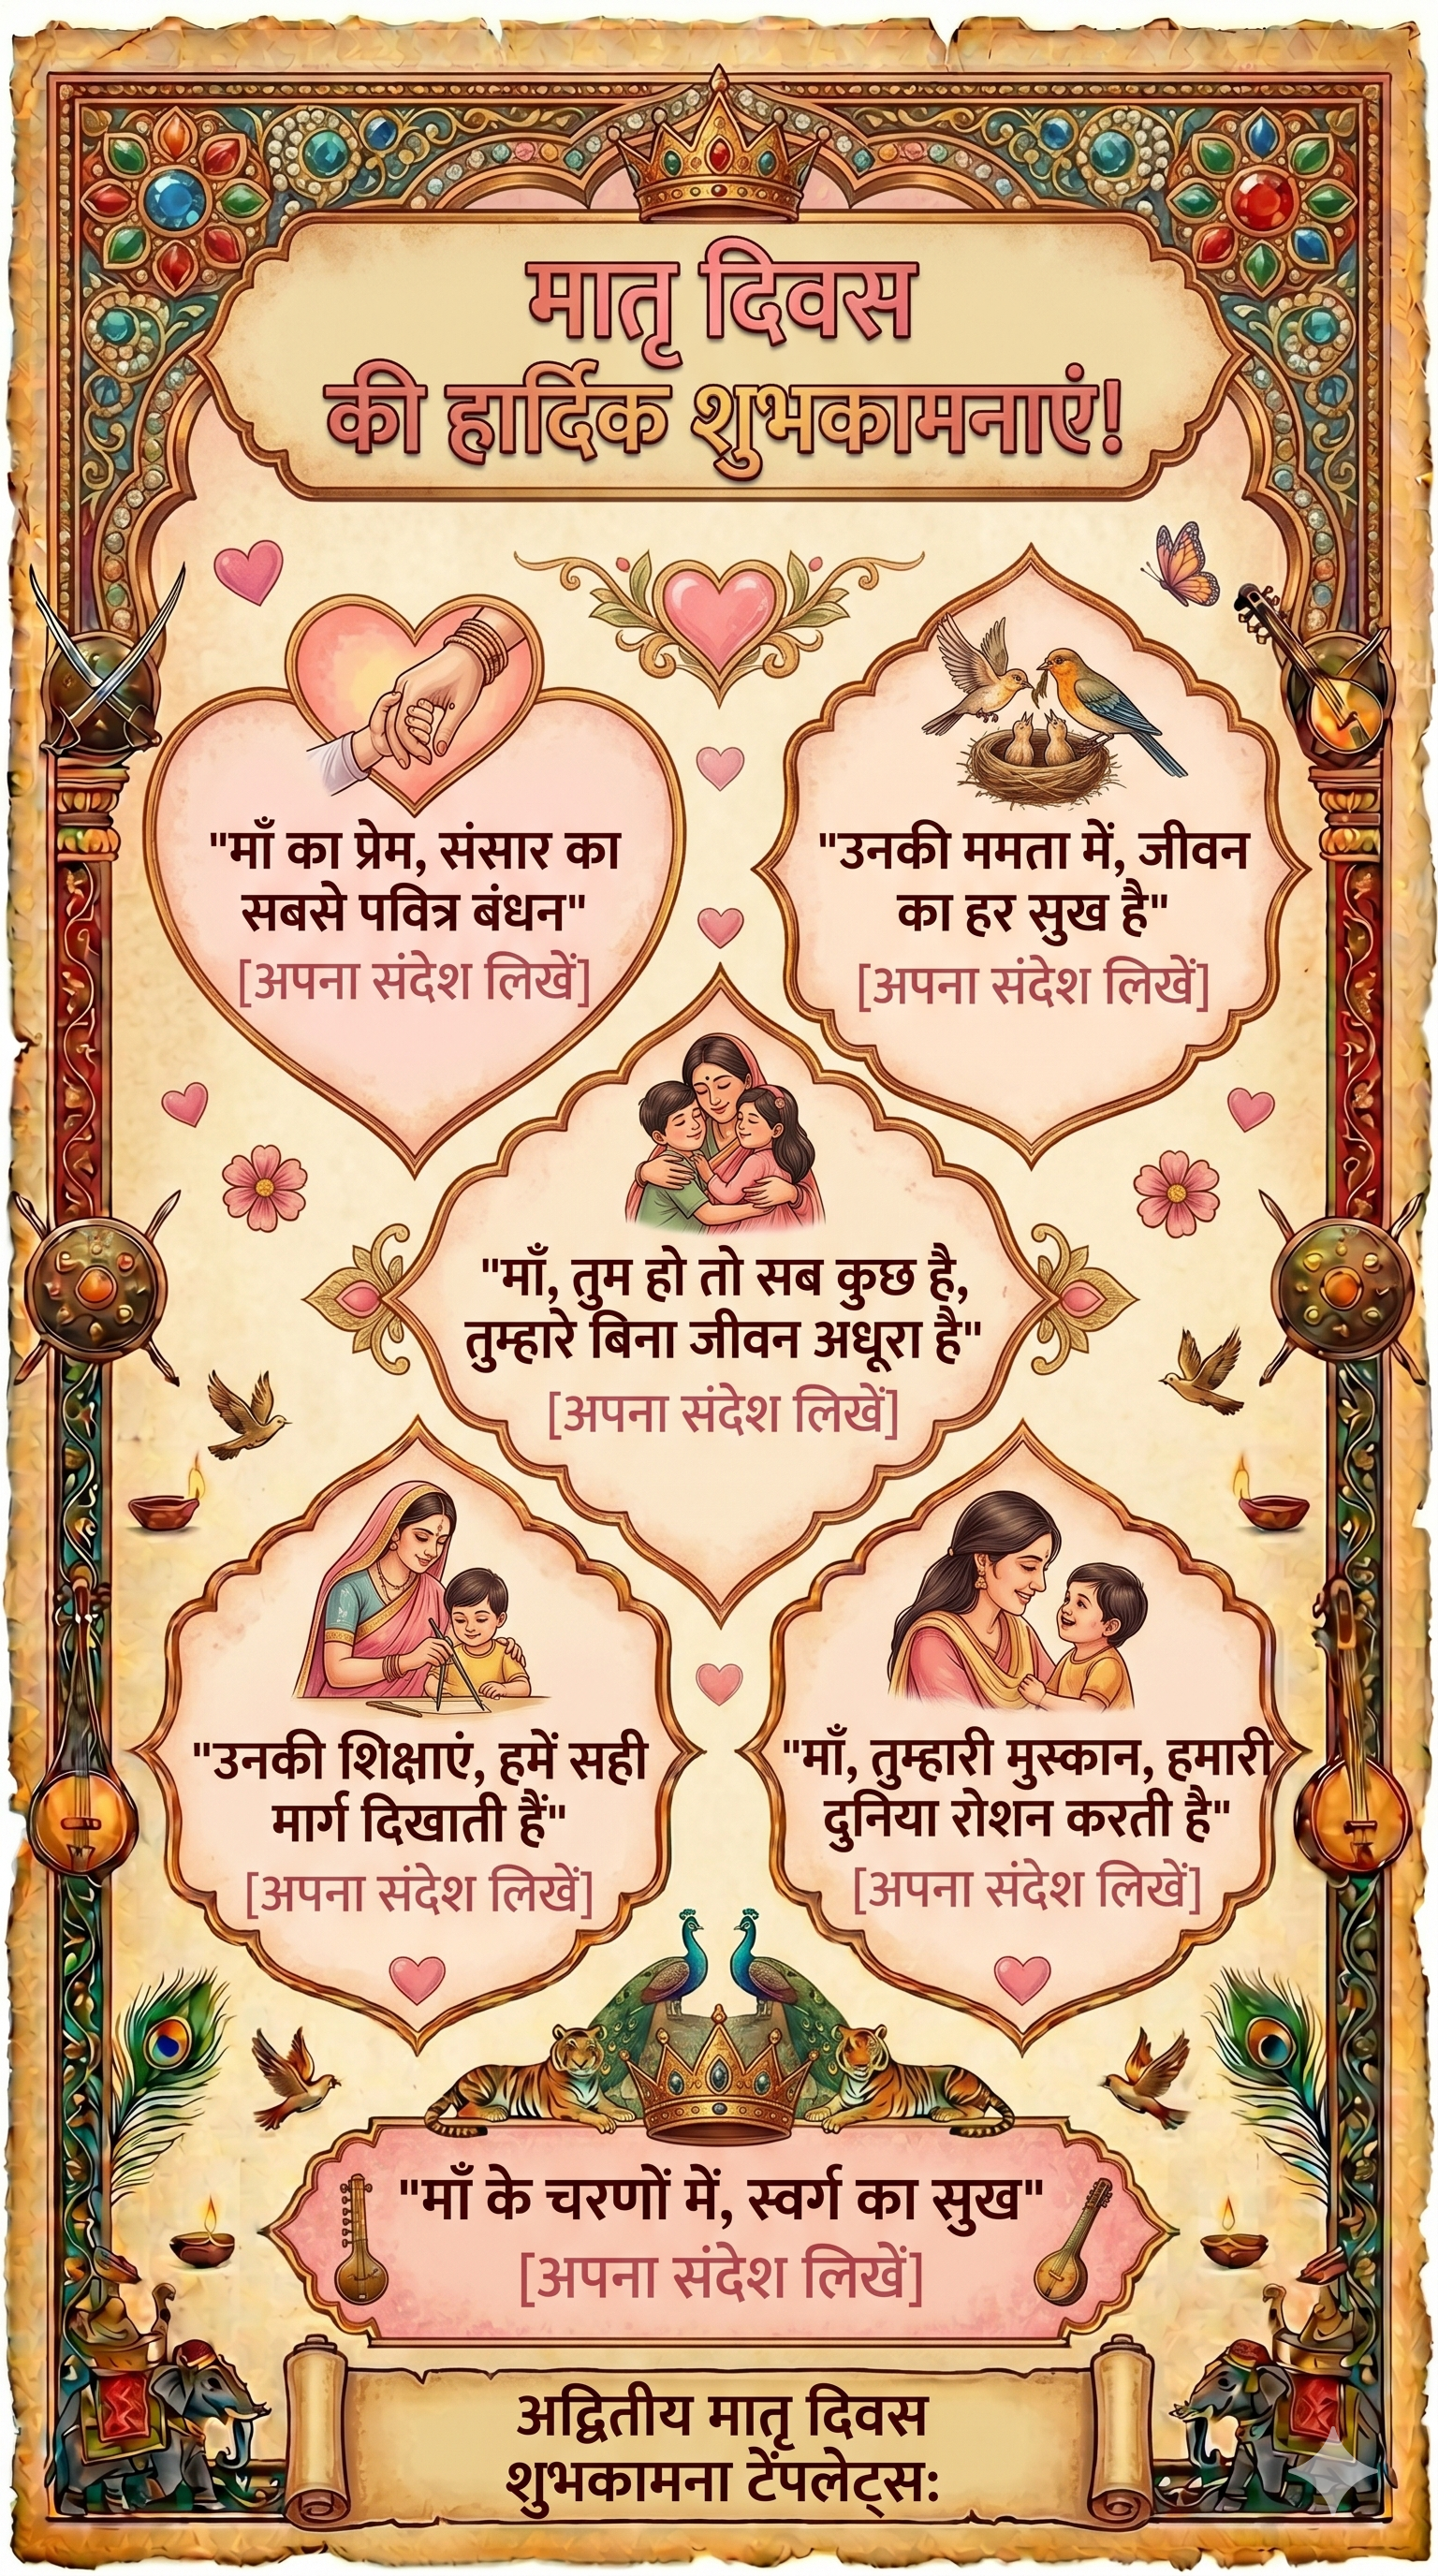 मातृ दिवस
की हार्दिक शुभकामनाएं!
"माँ का प्रेम, संसार का
सबसे पवित्र बंधन"
[अपना संदेश लिखें]
"उनकी ममता में, जीवन
का हर सुख है"
[अपना संदेश लिखें]
"माँ, तुम हो तो सब कुछ है,
तुम्हारे बिना जीवन अधूरा है"
[अपना संदेश लिखें]
"उनकी शिक्षाएं, हमें सही
मार्ग दिखाती हैं"
[अपना संदेश लिखें]
"माँ, तुम्हारी मुस्कान, हमारी
दुनिया रोशन करती है"
[अपना संदेश लिखें]
"माँ के चरणों में, स्वर्ग का सुख"
[अपना संदेश लिखें]
अद्वितीय मातृ दिवस
शुभकामना टेंपलेट्स: